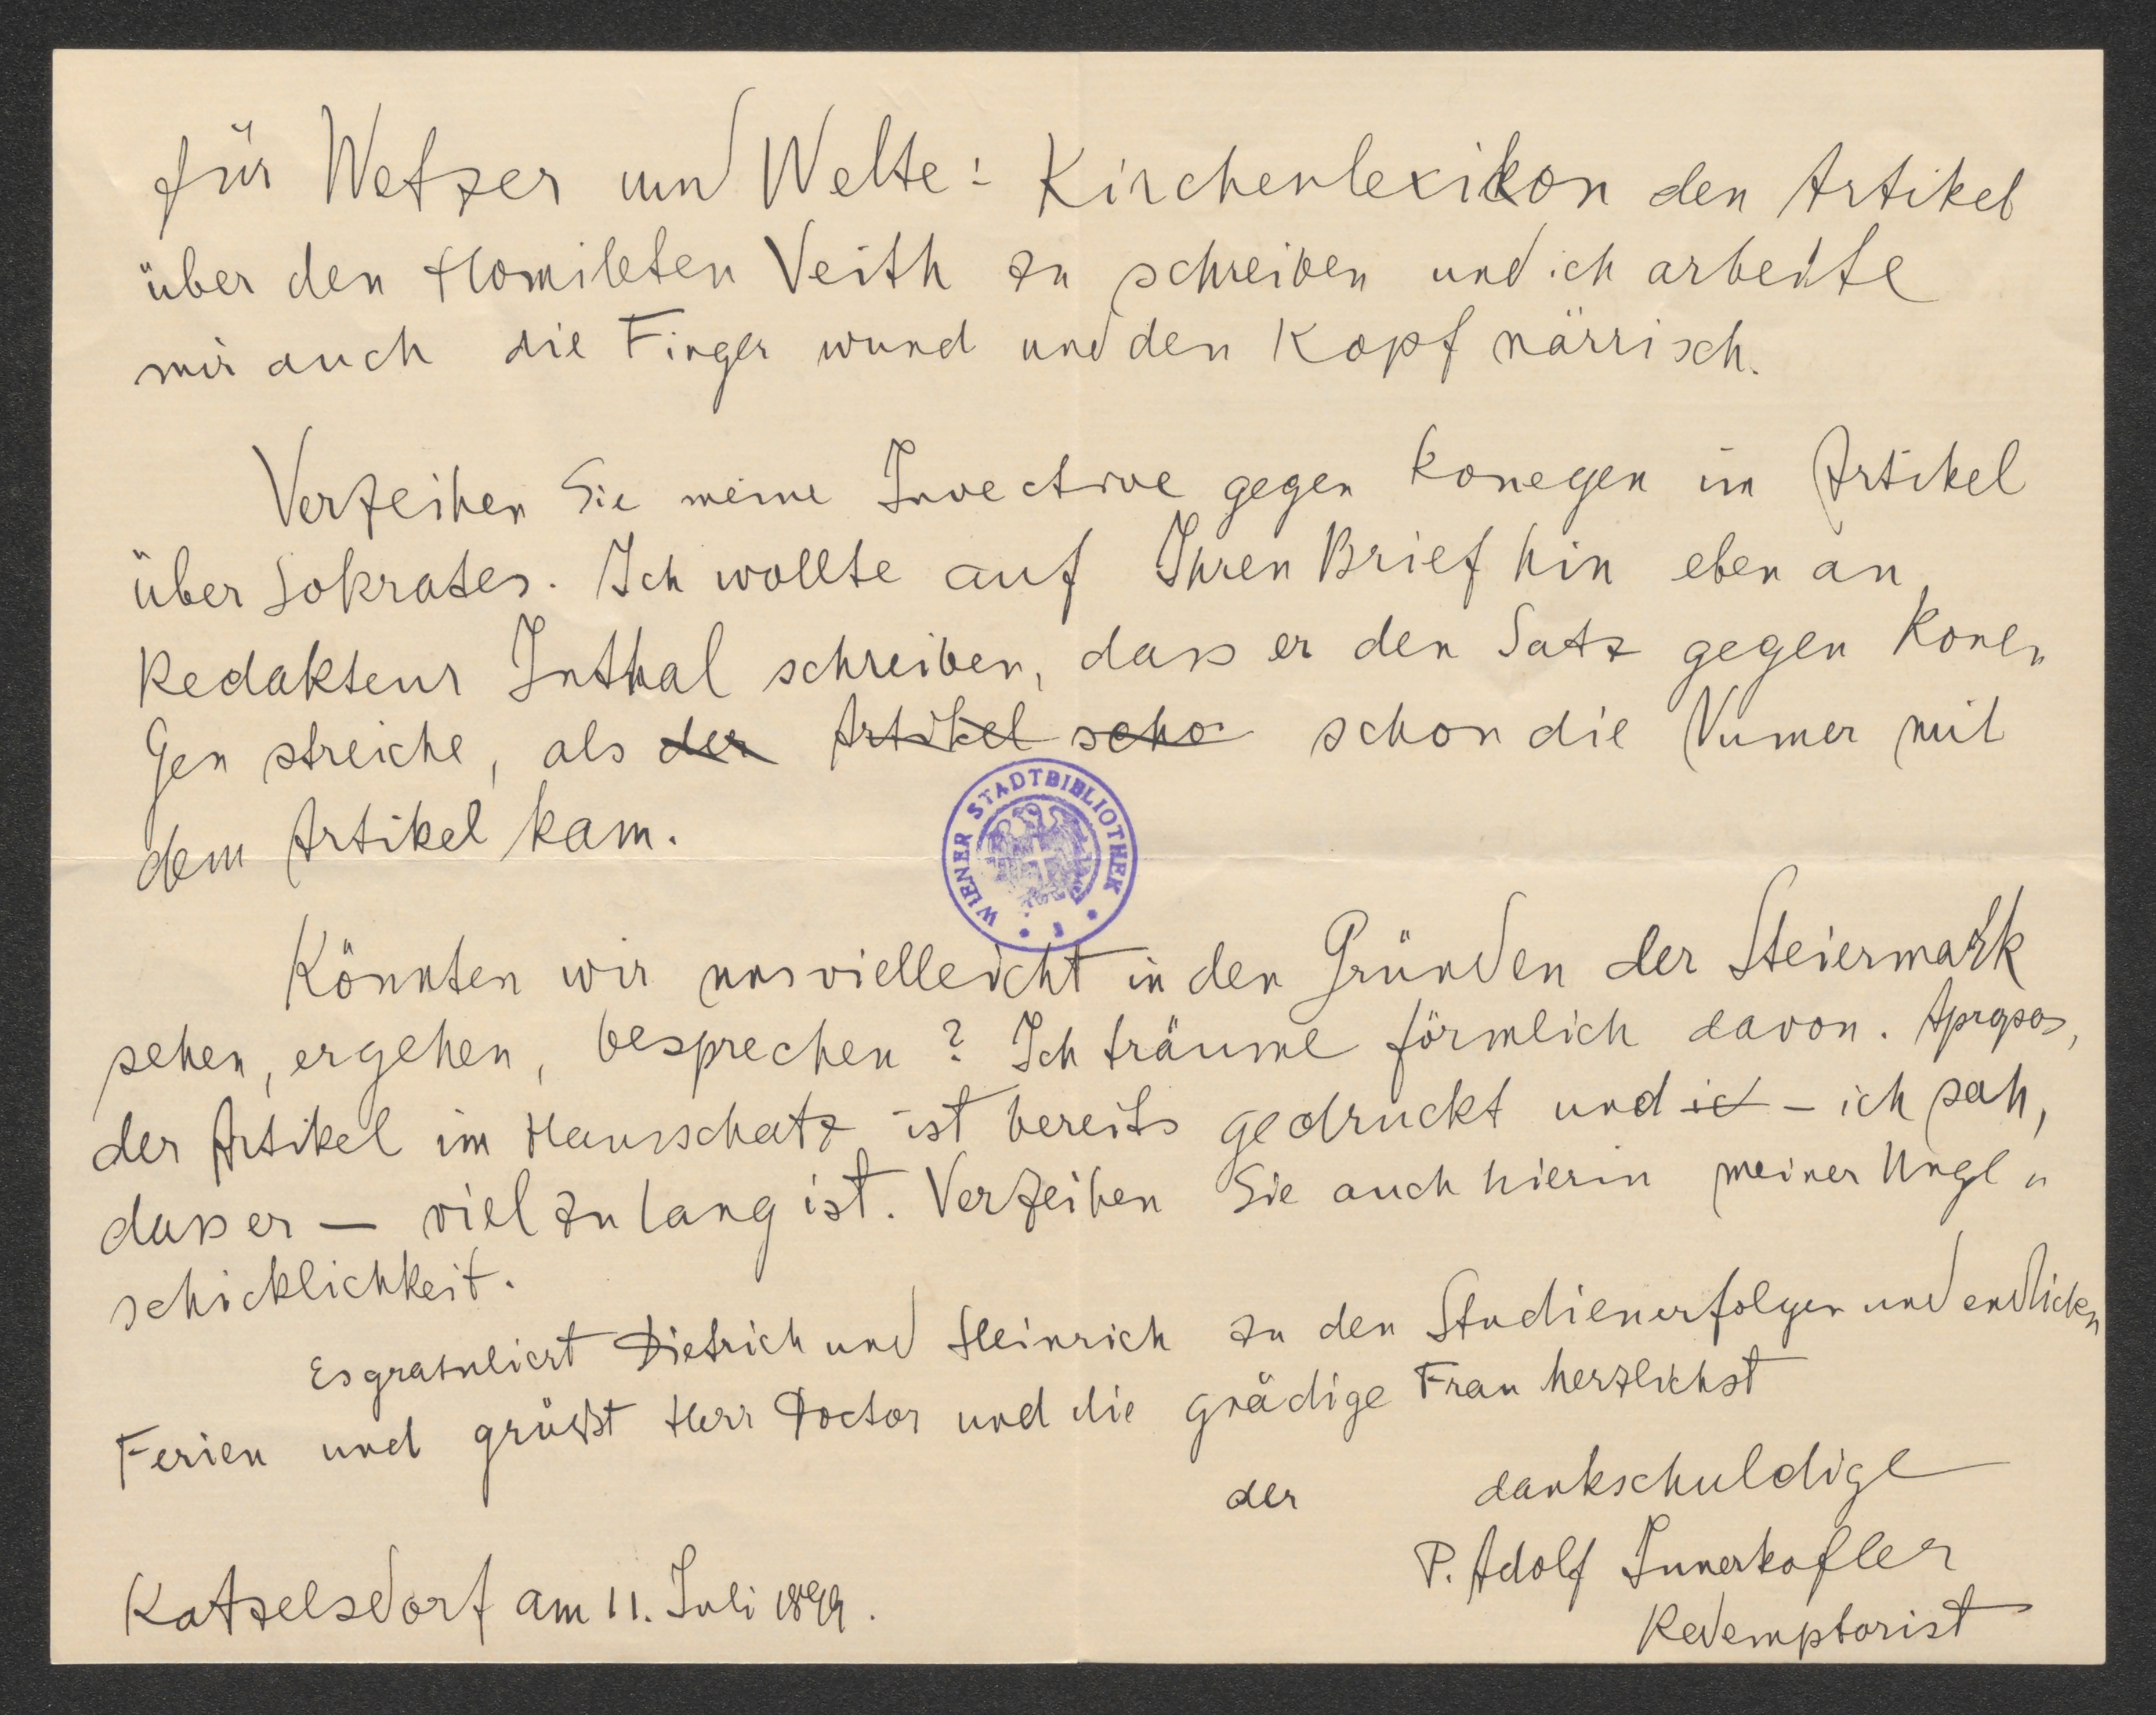 für Wetzer und Welte: Kirchenlexikon den Artikel
über den Homileten Veith zu schreiben und ich arbeite
mir auch die Finger wund und den Kopf närrisch.
Verzeihen Sie meine Invective gegen Konegen im Artikel
über Sokrates. Ich wollte auf Ihren Brief hin eben an
Redakteur Inthal schreiben, dass er den Satz gegen Kone-
gen streiche, als der Artikel scho schon die Numer mit
dem Artikel kam.
WIENER STADTBIBLIOTHEK
Könnten wir uns vielleicht in den Gründen der Steiermark
sehen, ergehen, besprechen? Ich träume förmlich davon. Apropos,
der Artikel im Hausschatz ist bereits gedruckt und ich - ich sah,
dass er — viel zu lang ist. Verzeihen Sie auch hierin meiner Unge-
schicklichkeit.
Es gratuliert Dietrich und Heinrich zu den Studienerfolgen und endlichen
Ferien und grüßt Herr Doctor und die gnädige Frau herzlichst
der dankschuldige
P. Adolf Innerkofler
Redemptorist
Katzelsdorf am 11. Juli 1899.